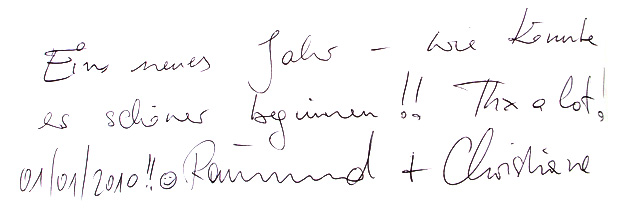 Ein neues Jahr - wie könnte
es schöner beginnen!! Thx a lot!
01/01/2010!!☺ Raimund + Christiane